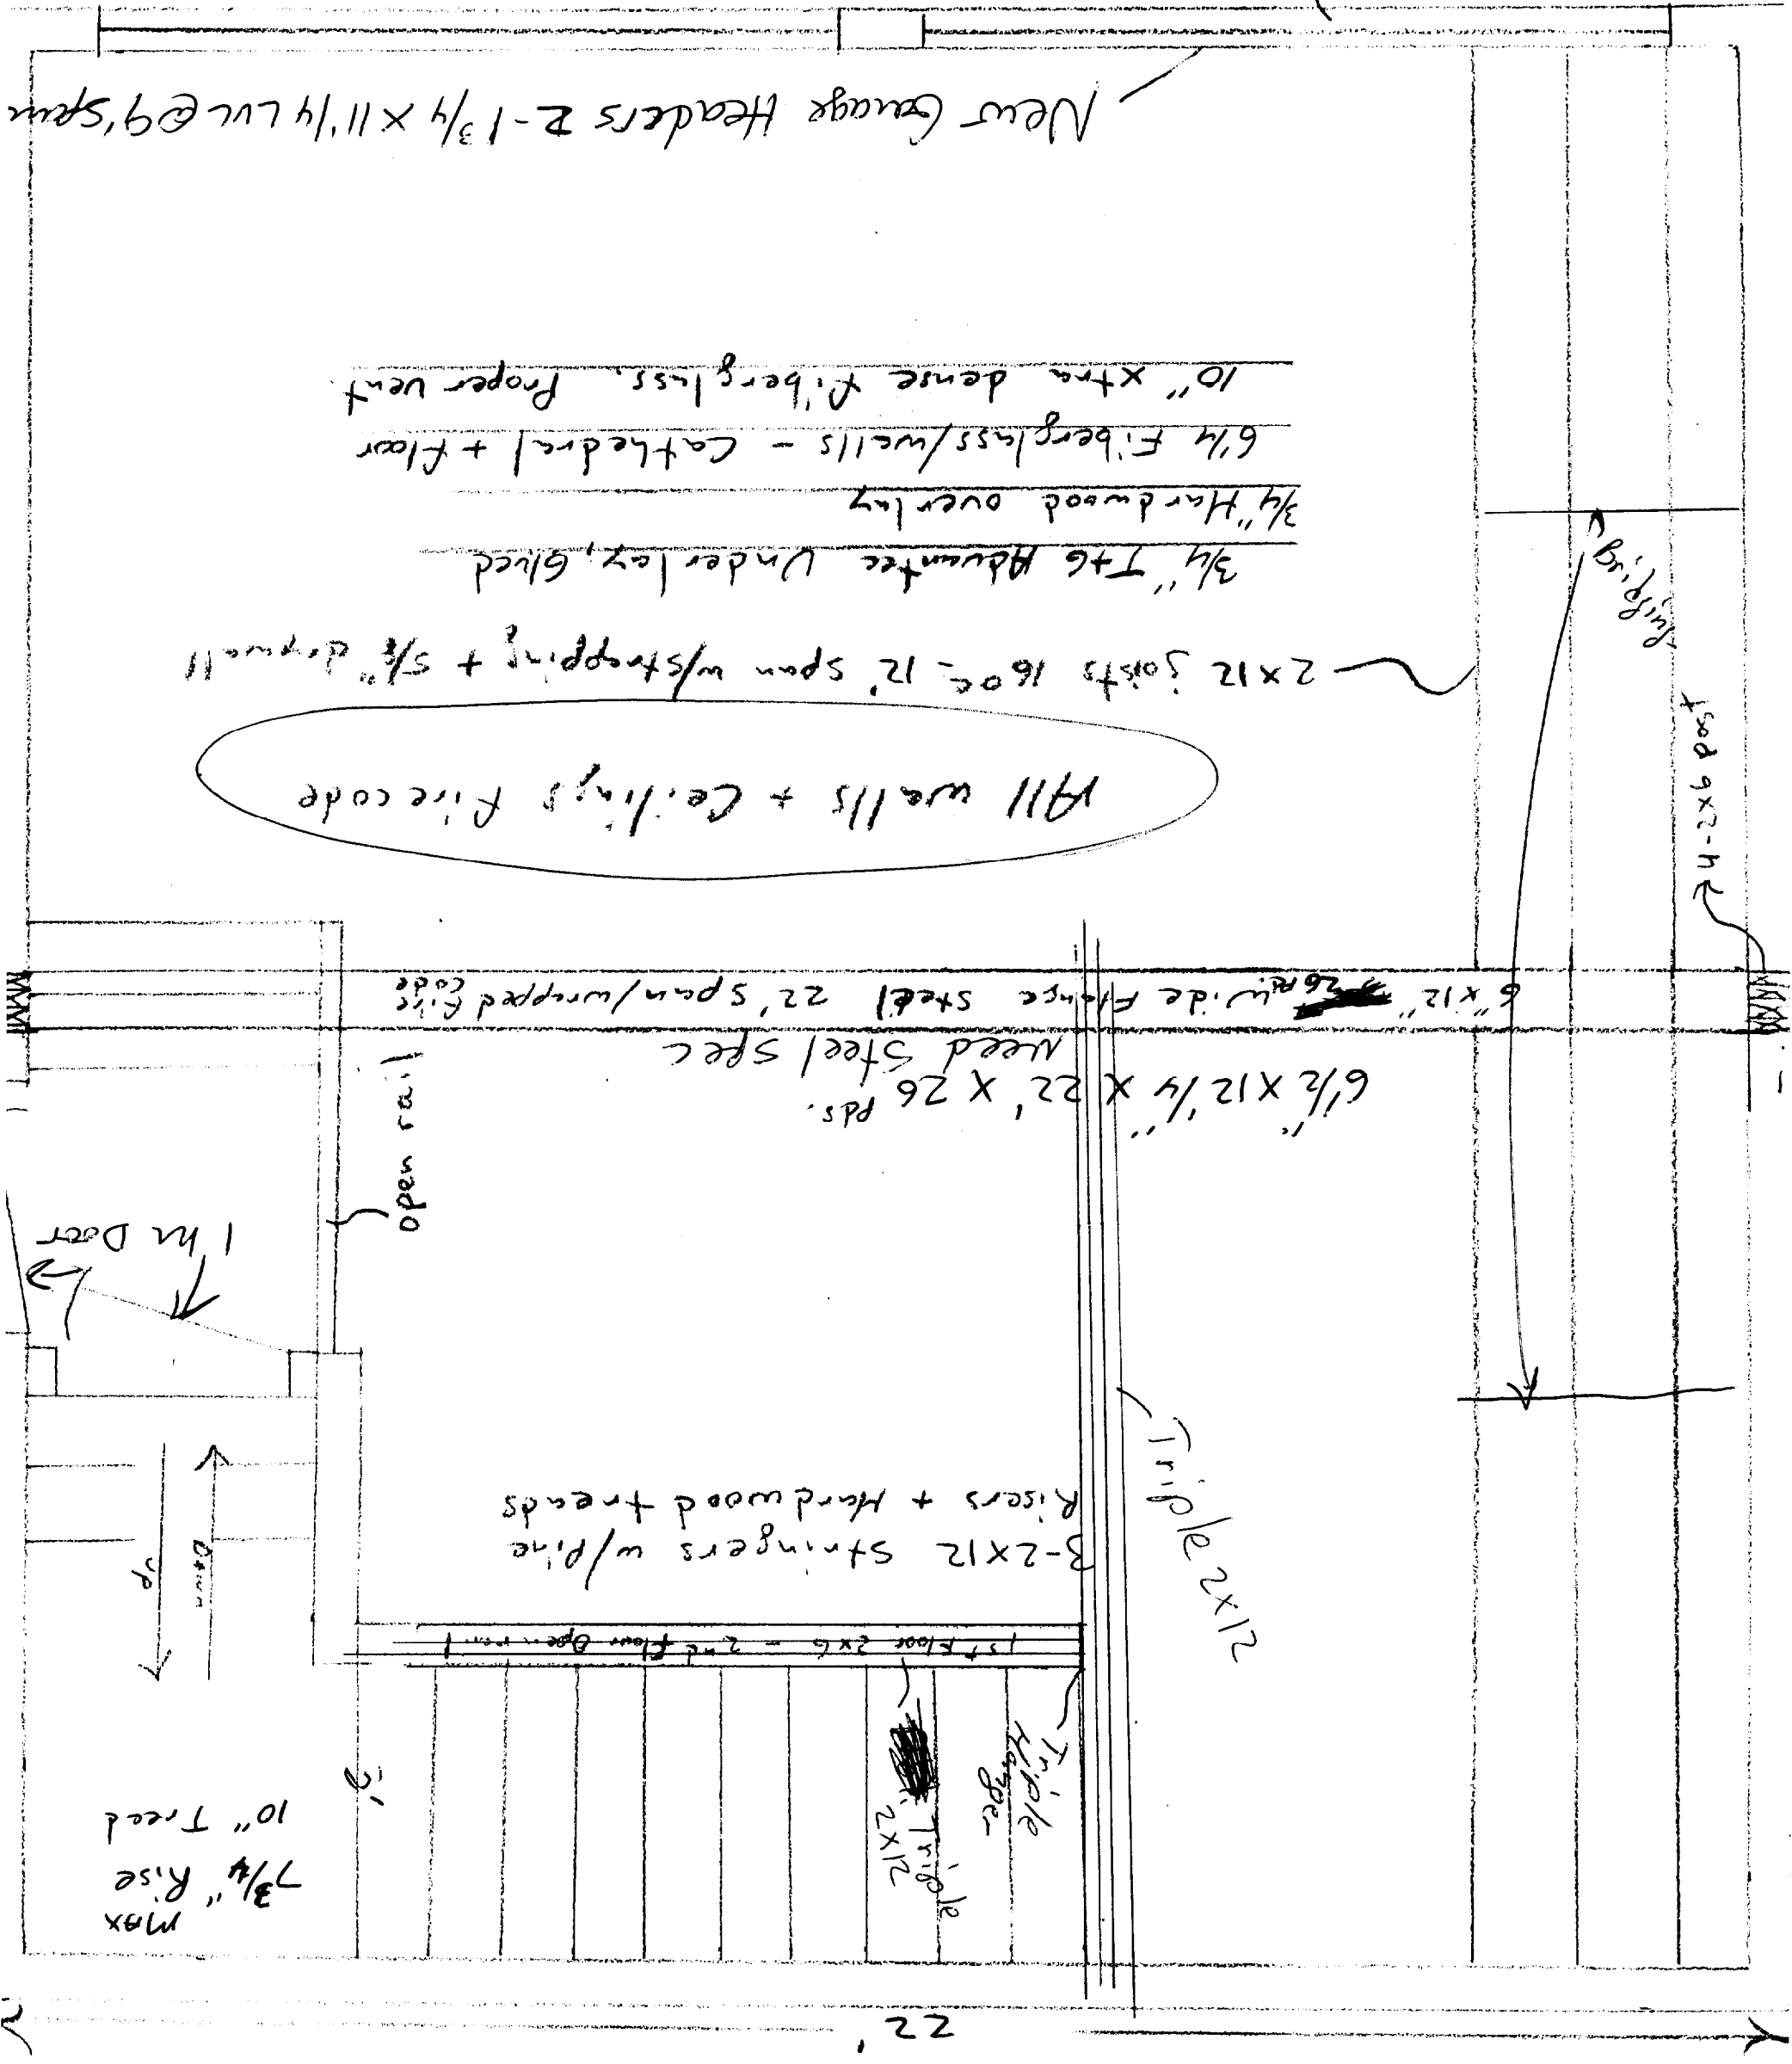 22'
MAX
7 3/4" Rise
10" Tread
3'
Triple
Hanger
Triple
2x12
1st Floor 2x6 - 2nd Floor Open rail
up
Down
3-2x12 Stringers w/Pine
Risers + Hardwood treads
Triple 2x12
1 hr Door
open rail
6 1/2" x 12 1/4" x 22' x 26 pds.
Need Steel Spec
6" x 12" 26 Wide Flange Steel 22' Span/wrapped Fire
code
4-2x6 post
All walls + Ceilings Firecode
2x12 joists 16 oc = 12' span w/strapping + 5/8" drywall
3/4" T+G Advantec Underlay, Glued
3/4" Hardwood overlay
6 1/4 Fiberglass/walls - Cathedral + Floor
10" xtra dense fiberglass. Proper vent
New Garage Headers 2-1 3/4 x 11 1/4 LVL @ 9' span